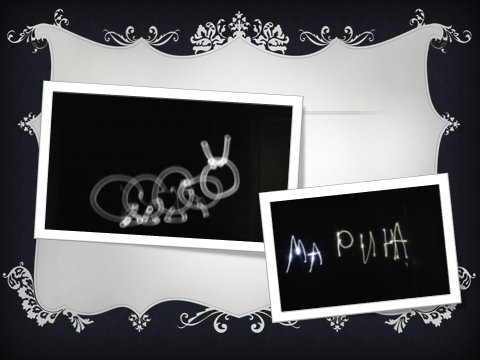 МА РИНА